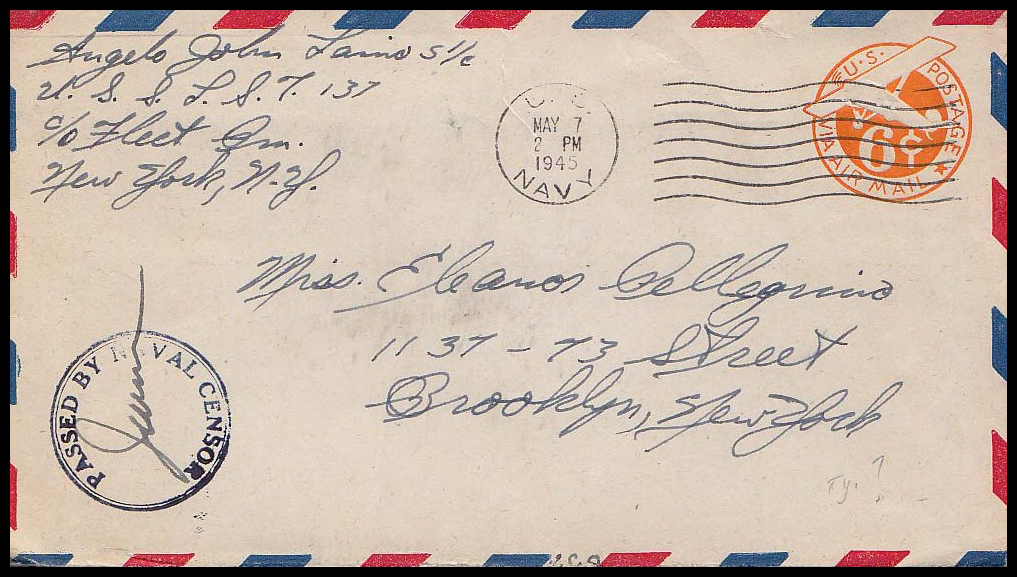 Angelo John Laino S 1/c
U. S. S. L. S. T. 137
c/o Fleet Qm.
New York, N.Y.
U. S.
MAY 7
2 PM
1945
NAVY
U.S. POSTAGE
6¢
VIA AIR MAIL
Miss. Eleanor Pellegrino
1137 - 73 Street
Brooklyn, New York
PASSED BY NAVAL CENSOR